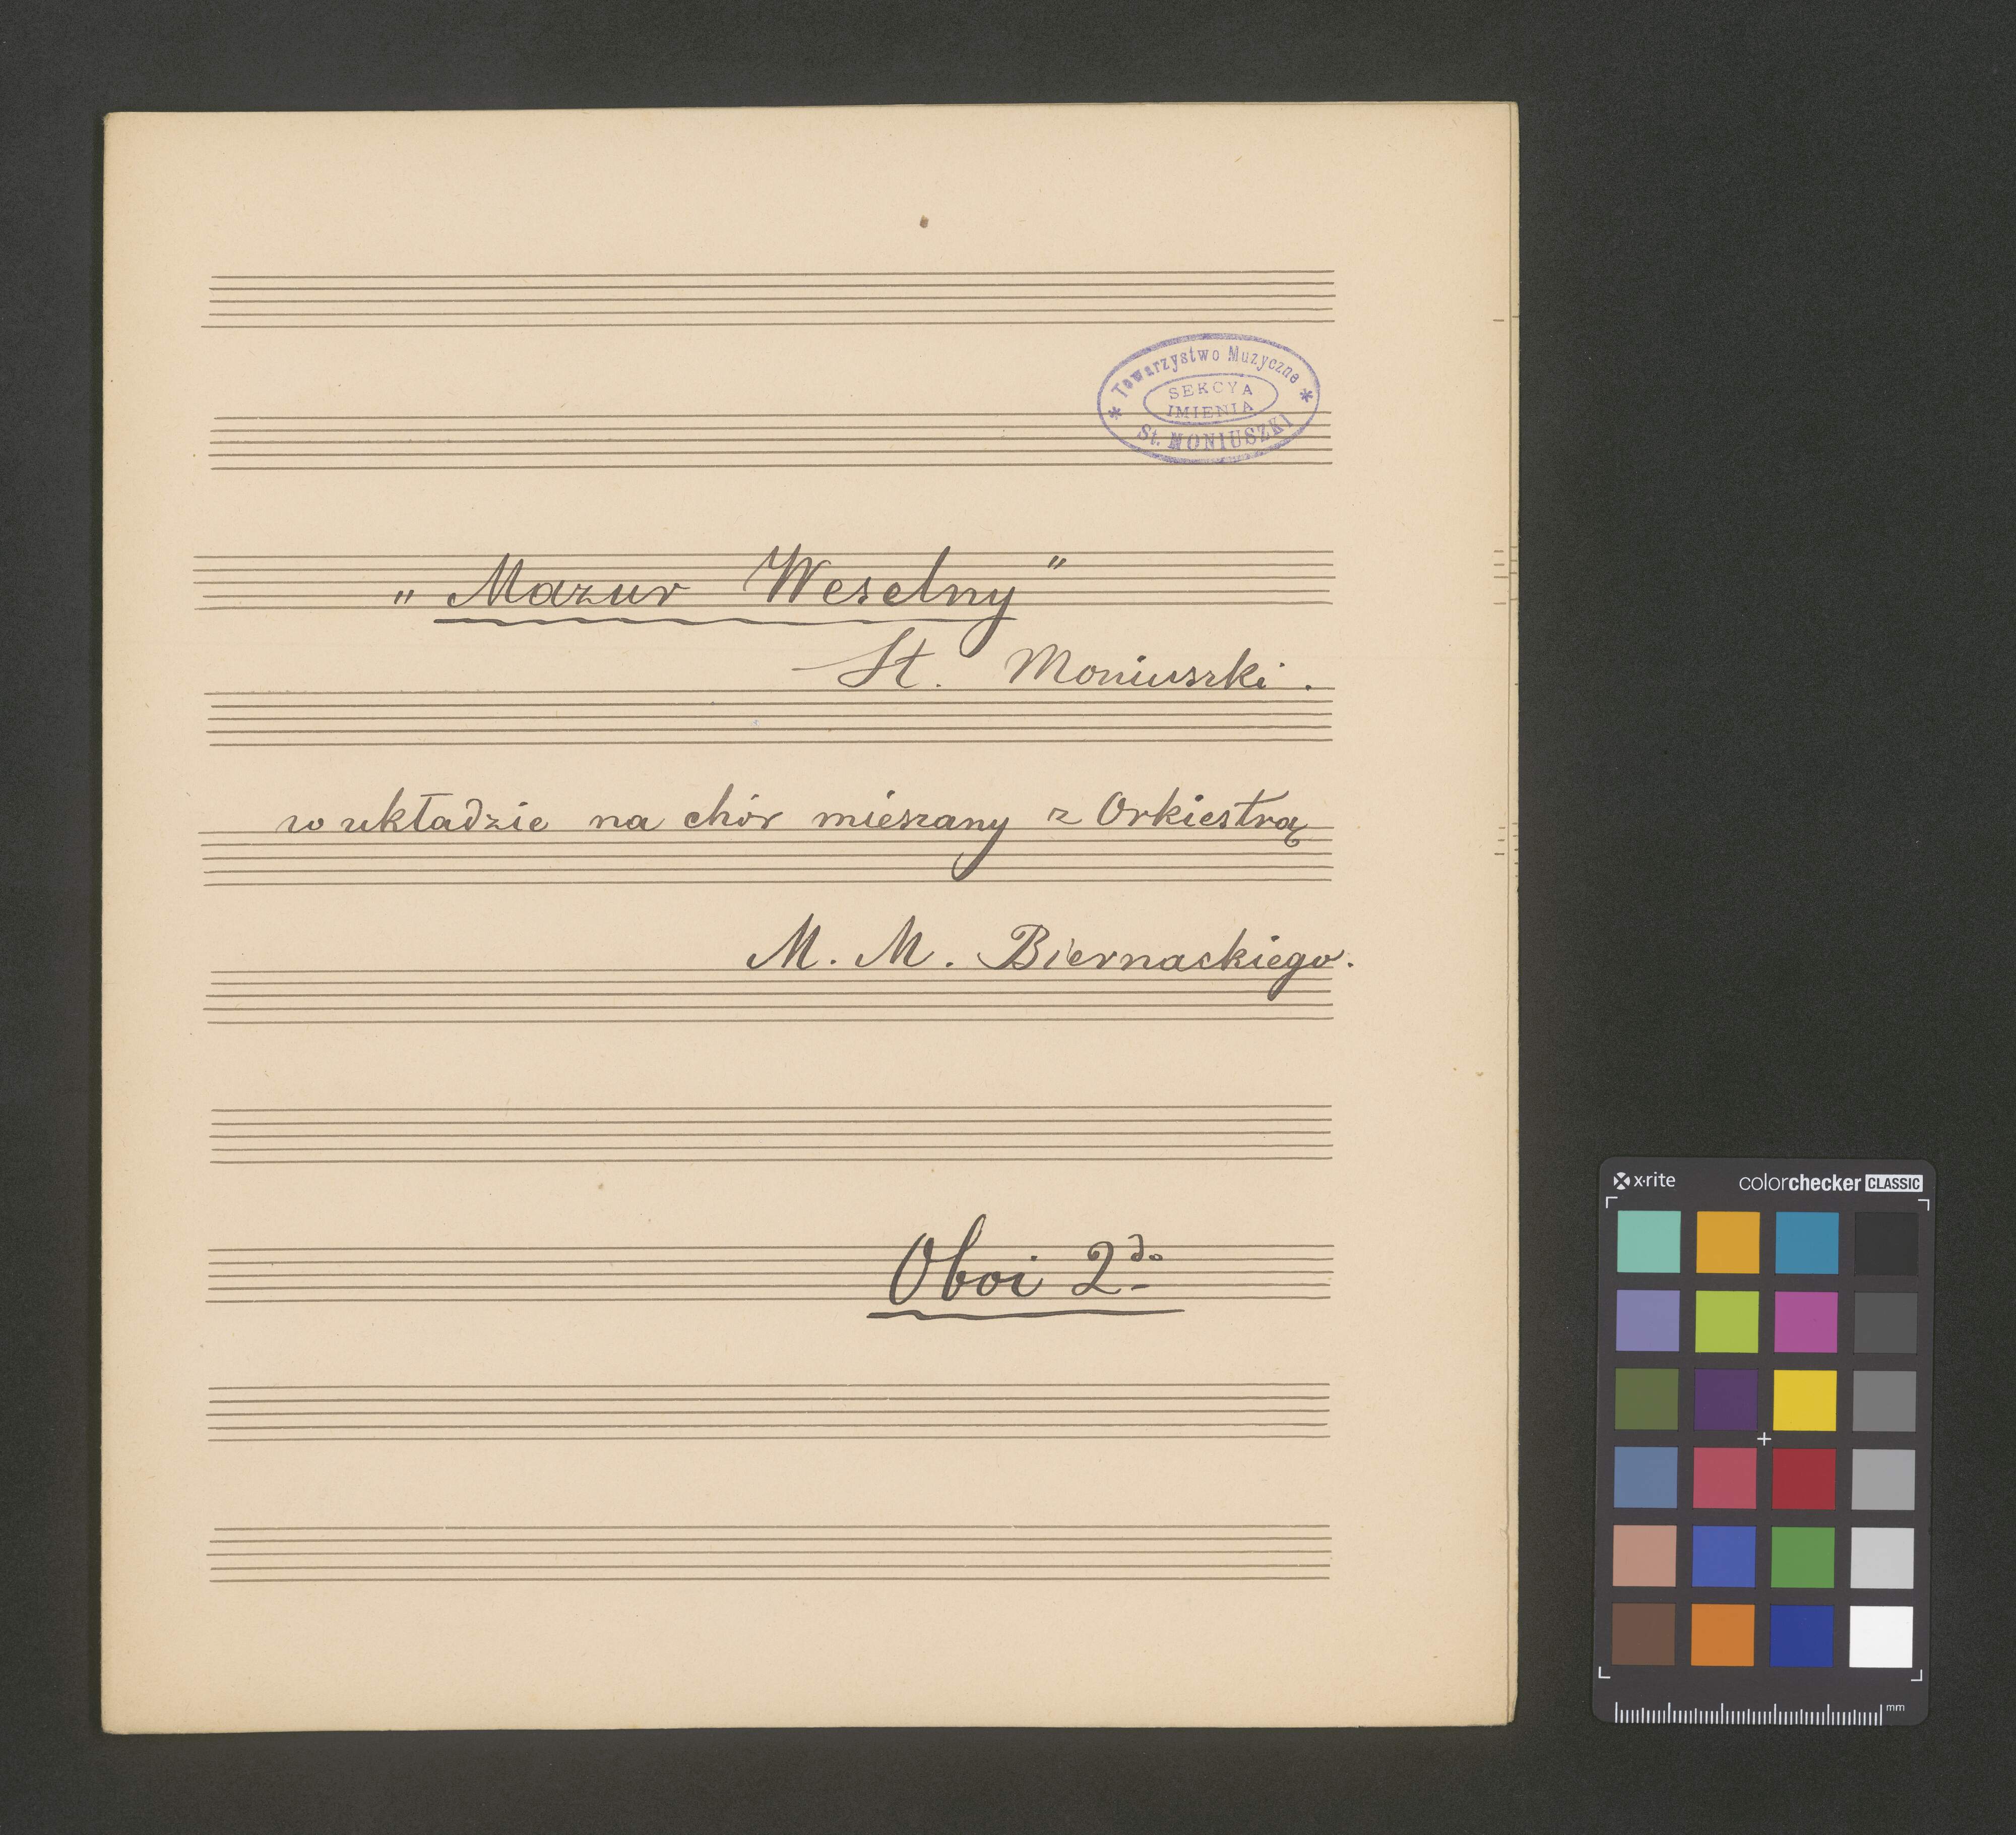 * Towarzystwo Muzyczne *
SEKCYA
IMIENIA
St. MONIUSZKI
„Mazur Weselny"
St. Moniuszki.
w układzie na chór mieszany z Orkiestrą
M. M. Biernackiego.
Oboi 2do
x·rite colorchecker CLASSIC
mm